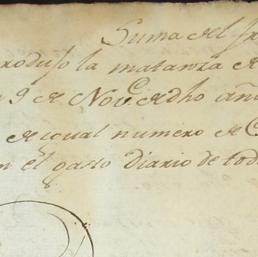 Suma del
produjo la matanza de
9 de Nov.e dho año
de igual numero de C
en el gasto Diario de tod